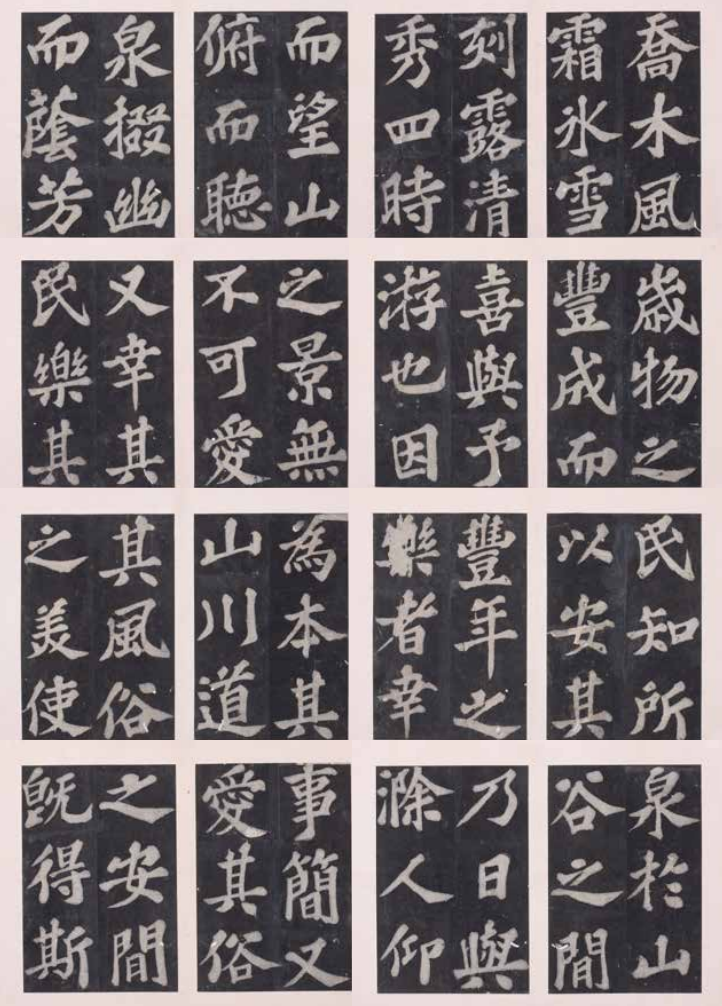 事簡又
愛其俗
之安間
既得斯
泉於山
谷之間
乃日與
滁人仰
而望山
俯而聴
泉掇幽
而蔭芳
喬木風
霜氷雪
刻露清
秀四時
之景無
不可愛
又幸其
民樂其
歳物之
豐成而
喜與予
游也因
為本其
山川道
其風俗
之美使
民知所
以安其
豐年之
樂者幸